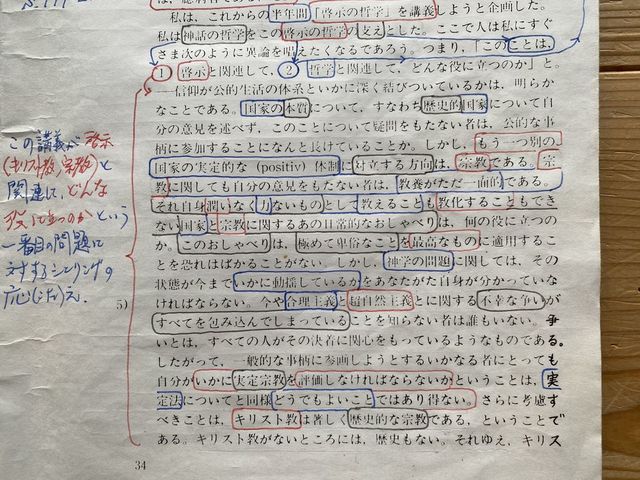 私は、これからの半年間「啓示の哲学」を講義しようと企画した。
私は神話の哲学をこの啓示の哲学の支えとした。ここで人は私にすぐ
さま次のように異論を唱えたくなるであろう。つまり、「このことは、
① 啓示と関連して、② 哲学と関連して、どんな役に立つのか」と。
——信仰が公的生活の体系といかに深く結びついているかは、明らか
なことである。国家の本質について、すなわち歴史的国家について自
分の意見を述べず、このことについて疑問をもたない者は、公的な事
柄に参加することになんと長けていることか。しかし、もう一つ別の、
国家の実定的な (positiv) 体制に対立する方向は、宗教である。宗
教に関しても自分の意見をもたない者は、教養がただ一面的である。
それ自身潤いなく力ないものとして教えることも教化することもでき
ない国家と宗教に関するあの日常的なおしゃべりは、何の役に立つの
か。このおしゃべりは、極めて卑俗なことを最高なものに適用するこ
とを恐れはばかることがない。しかし、神学の問題に関しては、その
状態が今までいかに動揺しているかをあなたがた自身が分かっていな
ければならない。今や合理主義と超自然主義とに関する不幸な争いが
すべてを包み込んでしまっていることを知らない者は誰もいない。争
いとは、すべての人がその決着に関心をもっているようなものである。
したがって、一般的な事柄に参画しようとするいかなる者にとっても
自分がいかに実定宗教を評価しなければならないかということは、実
定法についてと同様どうでもよいことではあり得ない。さらに考慮す
べきことは、キリスト教は著しく歴史的な宗教である、ということで
ある。キリスト教がないところには、歴史もない。それゆえ、キリス
34
5)
この講義が啓示
(キリスト教,宗教)と
関連して、どんな
役に立つのかという
一番目の問題に
対するシェリングの
応(こた)え.